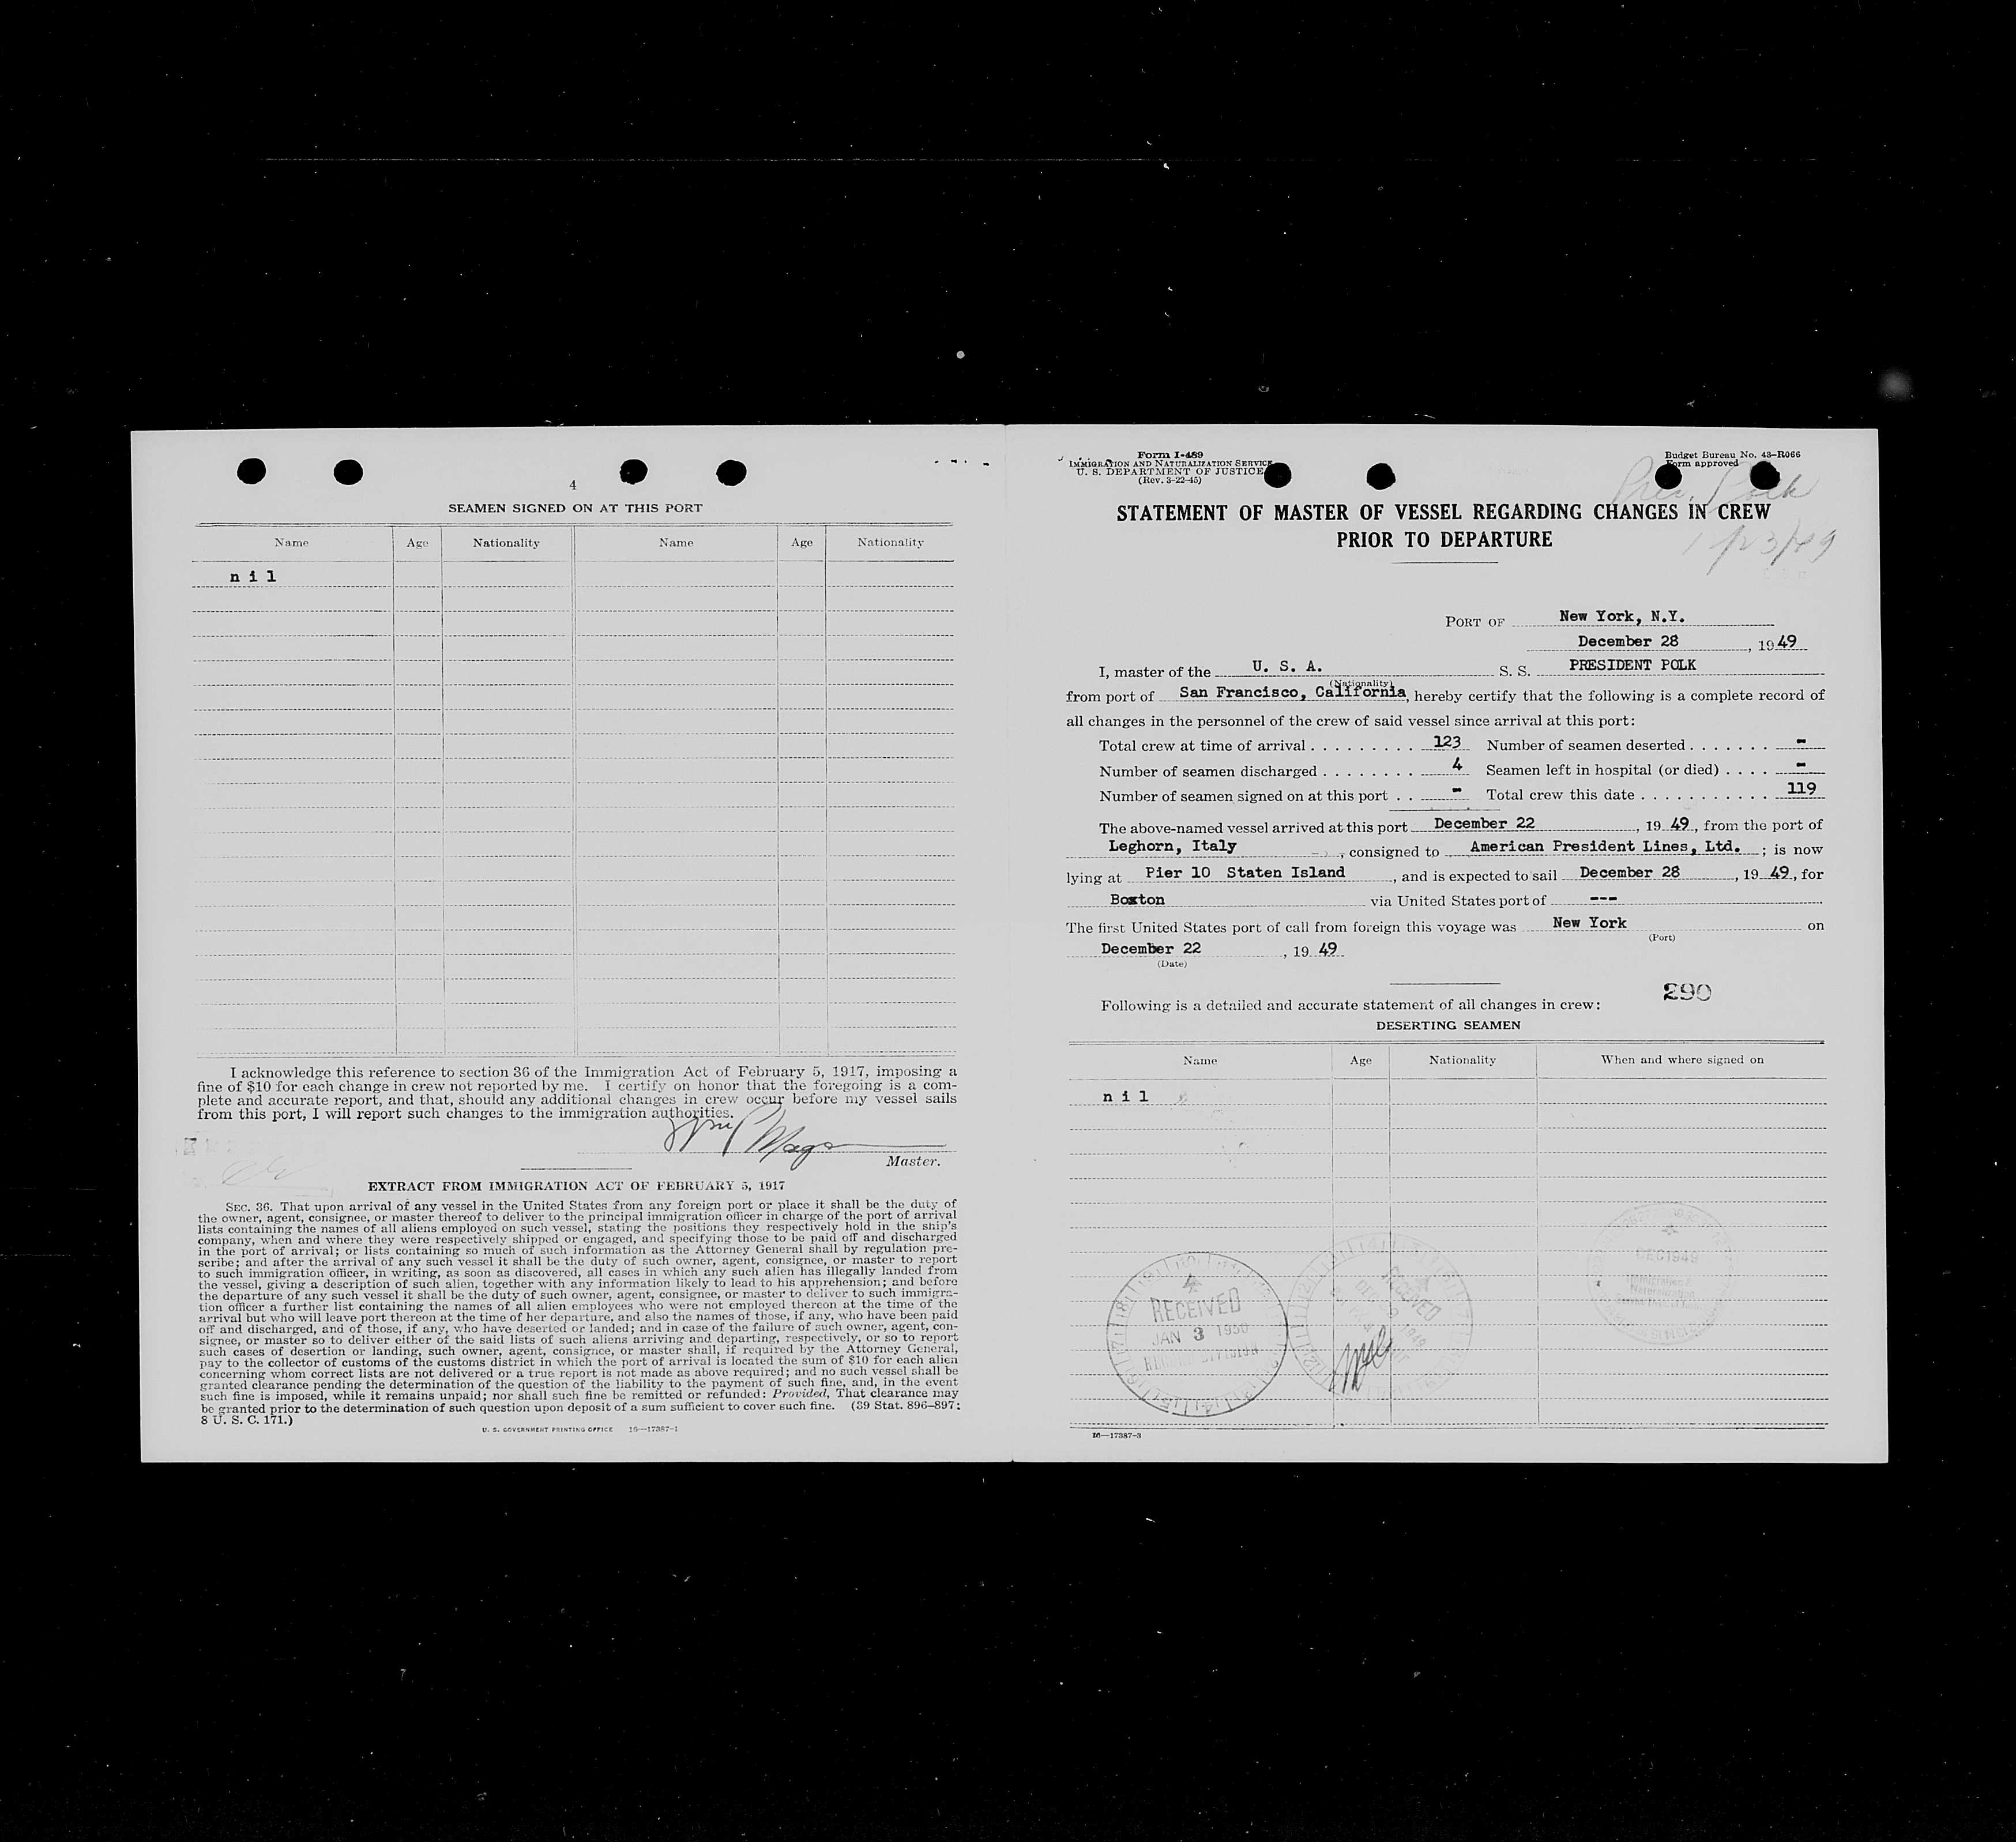 4
SEAMEN SIGNED ON AT THIS PORT
Name Age Nationality Name Age Nationality
n i l
I acknowledge this reference to section 36 of the Immigration Act of February 5, 1917, imposing a
fine of $10 for each change in crew not reported by me. I certify on honor that the foregoing is a com-
plete and accurate report, and that, should any additional changes in crew occur before my vessel sails
from this port, I will report such changes to the immigration authorities.
Master.
EXTRACT FROM IMMIGRATION ACT OF FEBRUARY 5, 1917
SEC. 36. That upon arrival of any vessel in the United States from any foreign port or place it shall be the duty of
the owner, agent, consignee, or master thereof to deliver to the principal immigration officer in charge of the port of arrival
lists containing the names of all aliens employed on such vessel, stating the positions they respectively hold in the ship's
company, when and where they were respectively shipped or engaged, and specifying those to be paid off and discharged
in the port of arrival; or lists containing so much of such information as the Attorney General shall by regulation pre-
scribe; and after the arrival of any such vessel it shall be the duty of such owner, agent, consignee, or master to report
to such immigration officer, in writing, as soon as discovered, all cases in which any such alien has illegally landed from
the vessel, giving a description of such alien, together with any information likely to lead to his apprehension; and before
the departure of any such vessel it shall be the duty of such owner, agent, consignee, or master to deliver to such immigra-
tion officer a further list containing the names of all alien employees who were not employed thereon at the time of the
arrival but who will leave port thereon at the time of her departure, and also the names of those, if any, who have been paid
off and discharged, and of those, if any, who have deserted or landed; and in case of the failure of such owner, agent, con-
signee, or master so to deliver either of the said lists of such aliens arriving and departing, respectively, or so to report
such cases of desertion or landing, such owner, agent, consignee, or master shall, if required by the Attorney General,
pay to the collector of customs of the customs district in which the port of arrival is located the sum of $10 for each alien
concerning whom correct lists are not delivered or a true report is not made as above required; and no such vessel shall be
granted clearance pending the determination of the question of the liability to the payment of such fine, and, in the event
such fine is imposed, while it remains unpaid; nor shall such fine be remitted or refunded: Provided, That clearance may
be granted prior to the determination of such question upon deposit of a sum sufficient to cover such fine. (39 Stat. 896-897;
8 U. S. C. 171.)
U. S. GOVERNMENT PRINTING OFFICE 16—17387-1
Form I-489
IMMIGRATION AND NATURALIZATION SERVICE
U. S. DEPARTMENT OF JUSTICE
(Rev. 3-22-45)
Budget Bureau No. 43-R066
Form approved
Pres. Polk
STATEMENT OF MASTER OF VESSEL REGARDING CHANGES IN CREW
PRIOR TO DEPARTURE
PORT OF New York, N.Y.
December 28, 1949
I, master of the U. S. A. S. S. PRESIDENT POLK
(Nationality)
from port of San Francisco, California, hereby certify that the following is a complete record of
all changes in the personnel of the crew of said vessel since arrival at this port:
Total crew at time of arrival . . . . . . . . . 123 Number of seamen deserted . . . . . . . -
Number of seamen discharged . . . . . . . . 4 Seamen left in hospital (or died) . . . . -
Number of seamen signed on at this port . . - Total crew this date . . . . . . . . . . . 119
The above-named vessel arrived at this port December 22, 19 49, from the port of
Leghorn, Italy, consigned to American President Lines, Ltd. ; is now
lying at Pier 10 Staten Island, and is expected to sail December 28, 19 49, for
Boston via United States port of ---
The first United States port of call from foreign this voyage was New York on
(Port)
December 22, 19 49
(Date)
290
Following is a detailed and accurate statement of all changes in crew:
DESERTING SEAMEN
Name Age Nationality When and where signed on
n i l
RECEIVED
JAN 3 1950
RECEIVED
1949
DEC 1949
16—17387-3